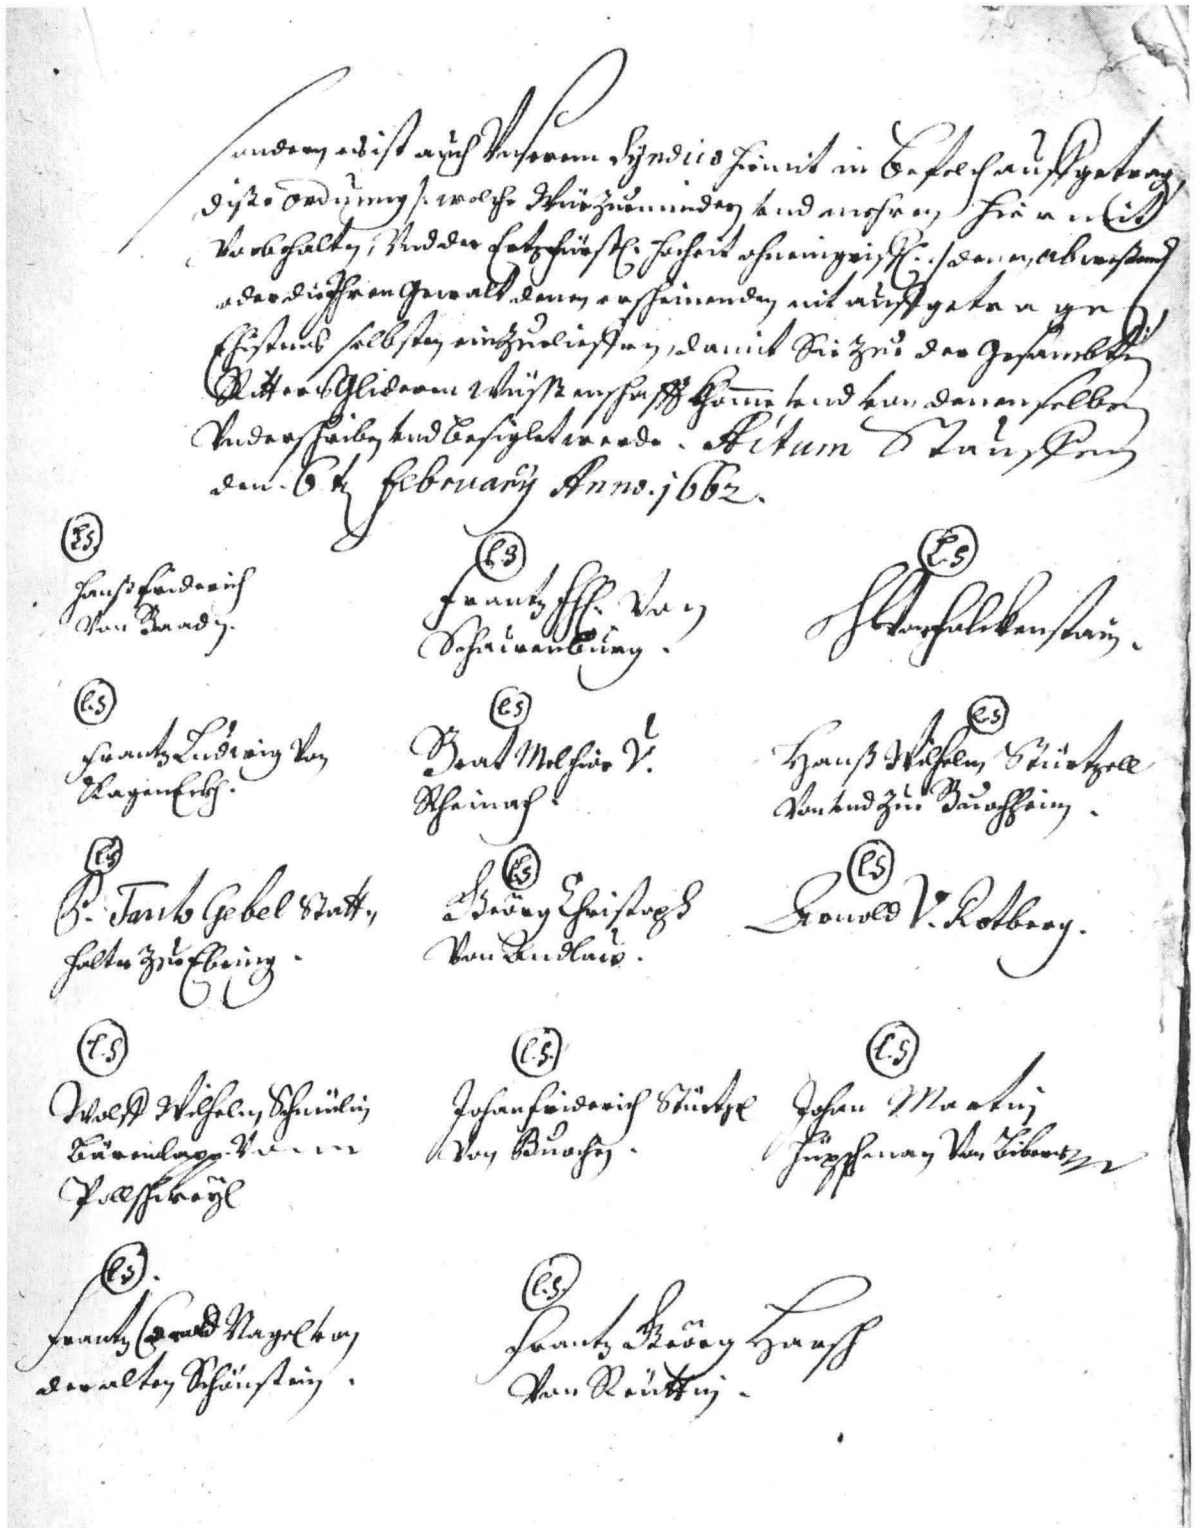 sondern es ist auch Unserem Syndico hiemit in Befelch auffgetrag
dise Ordnung /: welche Wür zuminderen und mehren hiermit
Vorbehalten, Und der Ertzfürstl: Hocheit ohneingriffl: :/ denen abwesend
oder die Ihren Gewalt denen erscheinenden nit auffgetragen
Ehistens selbsten einzulieffern, damit Sie zue der Gesambten
Ritters Glideren Wüssenschafft khomme und von denenselben
Underschriben und besiglet werde. Actum Stauffen
den 6t February Anno 1662.
L.S.
Hanß Friderich
Von Baaden.
L.S.
Frantz Von
Schauwenburg.
L.S.
Von Falckenstain.
L.S.
Frantz Ludwig Von
RagenEckh.
L.S.
Beat Melchior V.
Rheinach.
L.S.
Hanß Wilhelm Stürtzell
Von und Zue Buochheim.
L.S.
Gebel Statt=
halter Zue Ebring.
L.S.
Geörg Christoph
Von Andlaw.
L.S.
Arnold V. Rotberg.
L.S.
Wolff Wilhelm Schnüelin
Bärenlapp Von
Pollschweyl
L.S.
Johan Friderich Stürtzel
Von Buochen.
L.S.
Johan Martin
Hüpschman Von Biberach
L.S.
Frantz Conrad Nagel von
der alten Schönstein.
L.S.
Frantz Geörg Harsch
Von Reuttin.